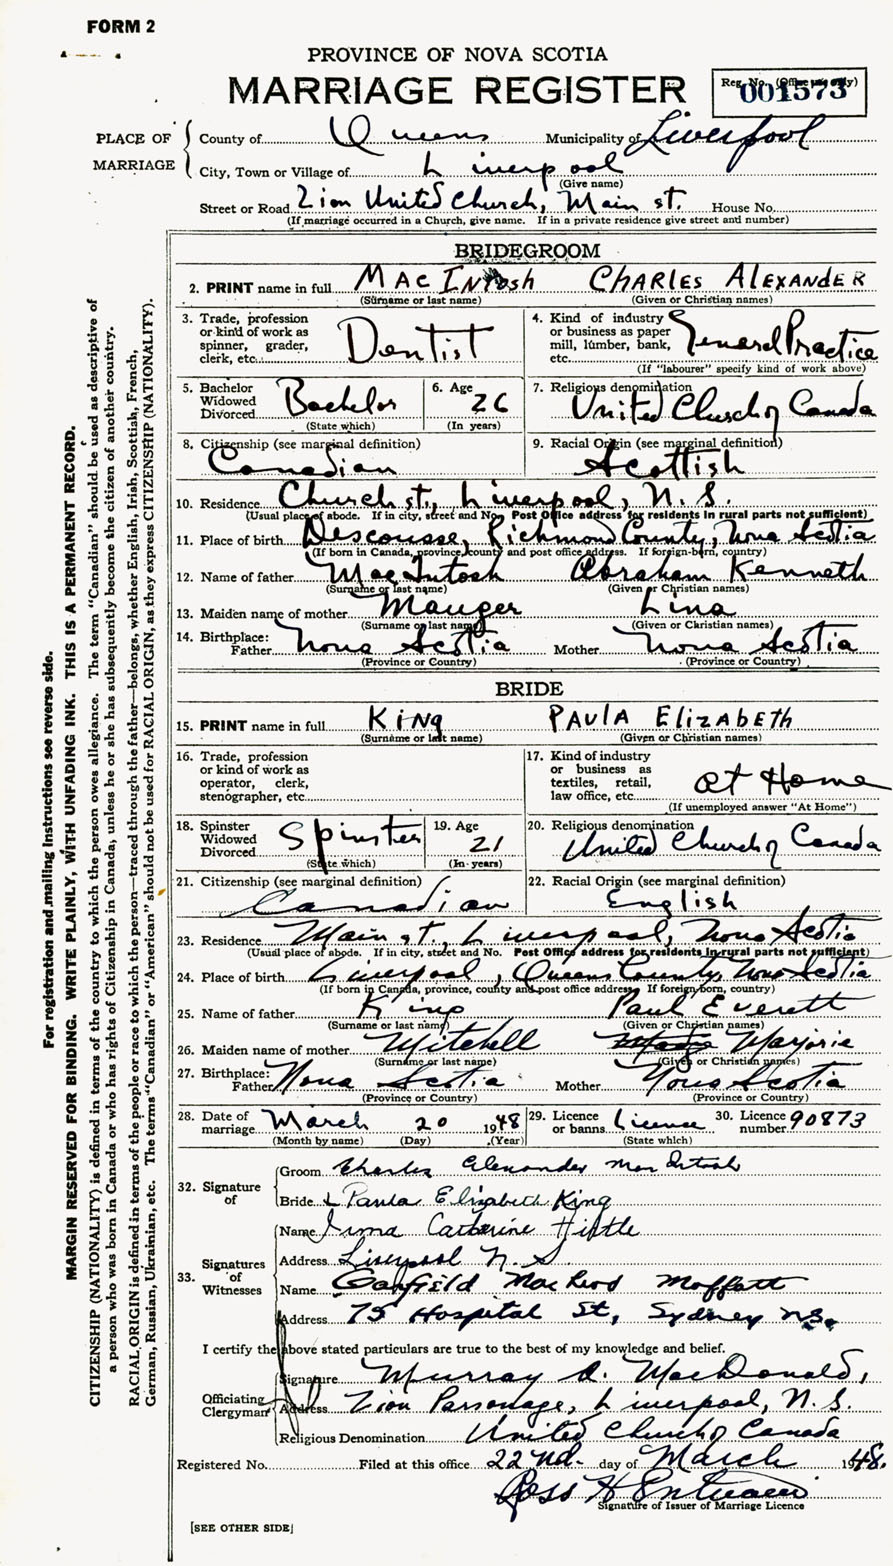 FORM 2
PROVINCE OF NOVA SCOTIA
MARRIAGE REGISTER
Reg. No. (Office use only)
001573
PLACE OF MARRIAGE
County of Queens Municipality of Liverpool
City, Town or Village of Liverpool
(Give name)
Street or Road Zion United Church, Main st. House No.
(If marriage occurred in a Church, give name. If in a private residence give street and number)
BRIDEGROOM
2. PRINT name in full MacIntosh Charles Alexander
(Surname or last name) (Given or Christian names)
3. Trade, profession or kind of work as spinner, grader, clerk, etc. Dentist
4. Kind of industry or business as paper mill, lumber, bank, etc. General Practice
(If "labourer" specify kind of work above)
5. Bachelor Widowed Divorced Bachelor
(State which)
6. Age 26
(In years)
7. Religious denomination United Church of Canada
8. Citizenship (see marginal definition) Canadian
9. Racial Origin (see marginal definition) Scottish
10. Residence Church st., Liverpool, N.S.
(Usual place of abode. If in city, street and No. Post Office address for residents in rural parts not sufficient)
11. Place of birth Descousse, Richmond County, Nova Scotia
(If born in Canada, province, county and post office address. If foreign-born, country)
12. Name of father MacIntosh Abraham Kenneth
(Surname or last name) (Given or Christian names)
13. Maiden name of mother Mauger Lina
(Surname or last name) (Given or Christian names)
14. Birthplace: Father Nova Scotia Mother Nova Scotia
(Province or Country) (Province or Country)
BRIDE
15. PRINT name in full King Paula Elizabeth
(Surname or last name) (Given or Christian names)
16. Trade, profession or kind of work as operator, clerk, stenographer, etc.
17. Kind of industry or business as textiles, retail, law office, etc. At Home
(If unemployed answer "At Home")
18. Spinster Widowed Divorced Spinster
(State which)
19. Age 21
(In years)
20. Religious denomination United Church of Canada
21. Citizenship (see marginal definition) Canadian
22. Racial Origin (see marginal definition) English
23. Residence Main st., Liverpool, Nova Scotia
(Usual place of abode. If in city, street and No. Post Office address for residents in rural parts not sufficient)
24. Place of birth Liverpool, Queens County, Nova Scotia
(If born in Canada, province, county and post office address. If foreign-born, country)
25. Name of father King Paul Everett
(Surname or last name) (Given or Christian names)
26. Maiden name of mother Mitchell Marjorie
(Surname or last name) (Given or Christian names)
27. Birthplace: Father Nova Scotia Mother Nova Scotia
(Province or Country) (Province or Country)
28. Date of marriage March 20 1948
(Month by name) (Day) (Year)
29. Licence or banns Licence
(State which)
30. Licence number 90873
32. Signature of
Groom Charles Alexander MacIntosh
Bride Paula Elizabeth King
33. Signatures of Witnesses
Name Irma Catherine Hirtle
Address Liverpool N.S
Name Garfield MacLeod Moffatt
Address 75 Hospital St., Sydney N.S.
I certify the above stated particulars are true to the best of my knowledge and belief.
Officiating Clergyman
Signature Murray A. MacDonald,
Address Zion Parsonage, Liverpool, N.S.
Religious Denomination United Church of Canada
Registered No. Filed at this office 22nd. day of March 1948.
Ross H
Signature of Issuer of Marriage Licence
[SEE OTHER SIDE]
For registration and mailing Instructions see reverse side.
MARGIN RESERVED FOR BINDING. WRITE PLAINLY, WITH UNFADING INK. THIS IS A PERMANENT RECORD.
CITIZENSHIP (NATIONALITY) is defined in terms of the country to which the person owes allegiance. The term "Canadian" should be used as descriptive of
a person who was born in Canada or who has rights of Citizenship in Canada, unless he or she has subsequently become the citizen of another country.
RACIAL ORIGIN is defined in terms of the people or race to which the person—traced through the father—belongs, whether English, Irish, Scottish, French,
German, Russian, Ukrainian, etc. The terms "Canadian" or "American" should not be used for RACIAL ORIGIN, as they express CITIZENSHIP (NATIONALITY).